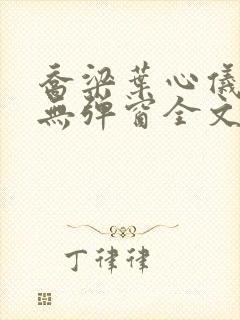 喬梁葉心儀
無彈窗全文
丁律律